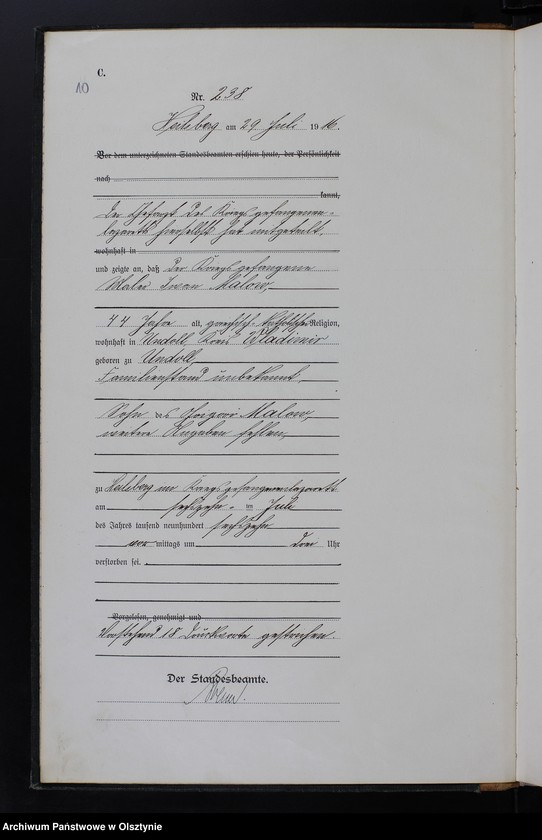 C.
10
Nr. 238
Heilsberg am 29. Juli 1916.
Vor dem unterzeichneten Standesbeamten erschien heute, der Persönlichkeit
nach
kannt,
Der Chefarzt des Kriegsgefangenen-
lazaretts hierselbst hat mitgeteilt,
wohnhaft in
und zeigte an, daß der Kriegsgefangene
Maler Iwan Malow,
44 Jahre alt, griechisch-katholischer Religion,
wohnhaft in Undoll, Kreis Wladimir
geboren zu Undoll,
Familienstand unbekannt,
Sohn des Grigori Malow,
weitere Angaben fehlen,
zu Heilsberg im Kriegsgefangenenlazarett
am sechzehn- im Juli
des Jahres tausend neunhundert sechzehn
vor mittags um drei Uhr
verstorben sei.
Vorgelesen, genehmigt und
Vorstehend 18 Druckworte gestrichen.
Der Standesbeamte.
Archiwum Państwowe w Olsztynie